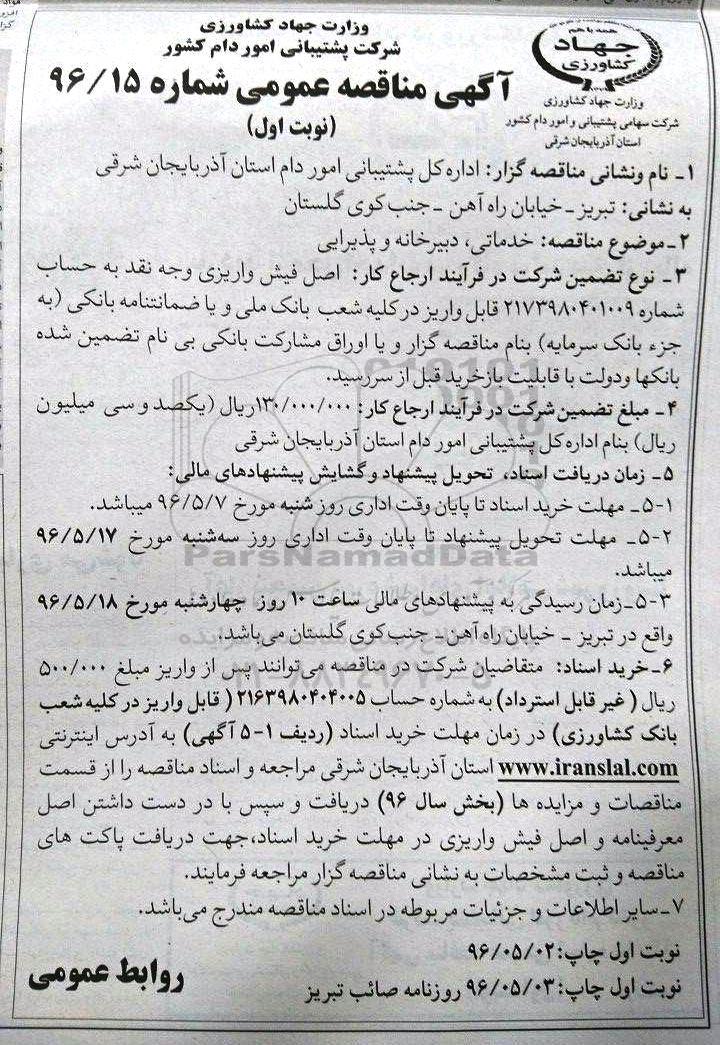 وزارت جهاد کشاورزی
شرکت پشتیبانی امور دام کشور
آگهی مناقصه عمومی شماره ۹۶/۱۵
(نوبت اول)
همه با هم
جهاد
کشاورزی
وزارت جهاد کشاورزی
شرکت سهامی پشتیبانی و امور دام کشور
استان آذربایجان شرقی
۱ـ نام ونشانی مناقصه گزار: اداره کل پشتیبانی امور دام استان آذربایجان شرقی
به نشانی: تبریز ـ خیابان راه آهن ـ جنب کوی گلستان
۲ـ موضوع مناقصه: خدماتی، دبیرخانه و پذیرایی
۳ـ نوع تضمین شرکت در فرآیند ارجاع کار: اصل فیش واریزی وجه نقد به حساب
شماره ۲۱۷۳۹۸۰۴۰۱۰۰۹ قابل واریز در کلیه شعب بانک ملی و یا ضمانتنامه بانکی (به
جزء بانک سرمایه) بنام مناقصه گزار و یا اوراق مشارکت بانکی بی نام تضمین شده
بانکها ودولت با قابلیت بازخرید قبل از سررسید.
۴ـ مبلغ تضمین شرکت در فرآیند ارجاع کار: ۱۳۰/۰۰۰/۰۰۰ریال (یکصد و سی میلیون
ریال) بنام اداره کل پشتیبانی امور دام استان آذربایجان شرقی
۵ـ زمان دریافت اسناد، تحویل پیشنهاد و گشایش پیشنهادهای مالی:
۵-۱ـ مهلت خرید اسناد تا پایان وقت اداری روز شنبه مورخ ۹۶/۵/۷ میباشد.
۵-۲ـ مهلت تحویل پیشنهاد تا پایان وقت اداری روز سه‌شنبه مورخ ۹۶/۵/۱۷
میباشد.
۵-۳ـ زمان رسیدگی به پیشنهادهای مالی ساعت ۱۰ روز چهارشنبه مورخ ۹۶/۵/۱۸
واقع در تبریز ـ خیابان راه آهن ـ جنب کوی گلستان می‌باشد.
۶ـ خرید اسناد: متقاضیان شرکت در مناقصه می‌توانند پس از واریز مبلغ ۵۰۰/۰۰۰
ریال (غیر قابل استرداد) به شماره حساب ۲۱۶۳۹۸۰۴۰۴۰۰۵ (قابل واریز در کلیه شعب
بانک کشاورزی) در زمان مهلت خرید اسناد (ردیف ۱-۵ آگهی) به آدرس اینترنتی
www.iranslal.com استان آذربایجان شرقی مراجعه و اسناد مناقصه را از قسمت
مناقصات و مزایده ها (بخش سال ۹۶) دریافت و سپس با در دست داشتن اصل
معرفینامه و اصل فیش واریزی در مهلت خرید اسناد،جهت دریافت پاکت های
مناقصه و ثبت مشخصات به نشانی مناقصه گزار مراجعه فرمایند.
۷ـ سایر اطلاعات و جزئیات مربوطه در اسناد مناقصه مندرج می‌باشد.
نوبت اول چاپ: ۹۶/۰۵/۰۲
نوبت اول چاپ: ۹۶/۰۵/۰۳ روزنامه صائب تبریز
روابط عمومی
ParsNamadData